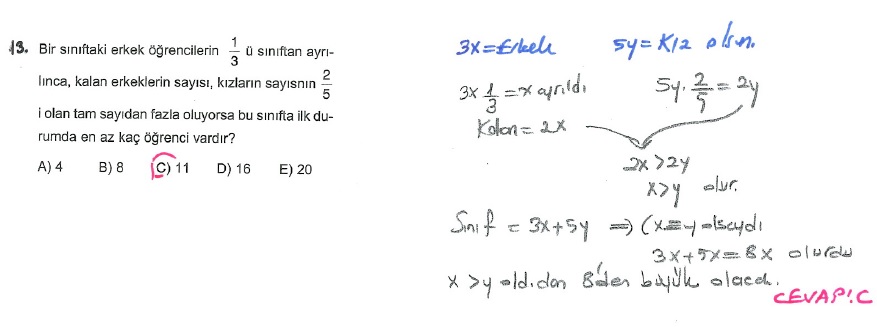 13. Bir sınıftaki erkek öğrencilerin 1/3 ü sınıftan ayrı-
lınca, kalan erkeklerin sayısı, kızların sayısnın 2/5
i olan tam sayıdan fazla oluyorsa bu sınıfta ilk du-
rumda en az kaç öğrenci vardır?
A) 4 B) 8 C) 11 D) 16 E) 20
3x = Erkek 5y = Kız olsun.
3x 1/3 = x ayrıldı 5y . 2/5 = 2y
Kalan = 2x
2x > 2y
x > y olur.
Sınıf = 3x + 5y ⇒ (x = y olsaydı
3x + 5x = 8x olurdu
x > y old.dan 8'den büyük olacak.
CEVAP: C